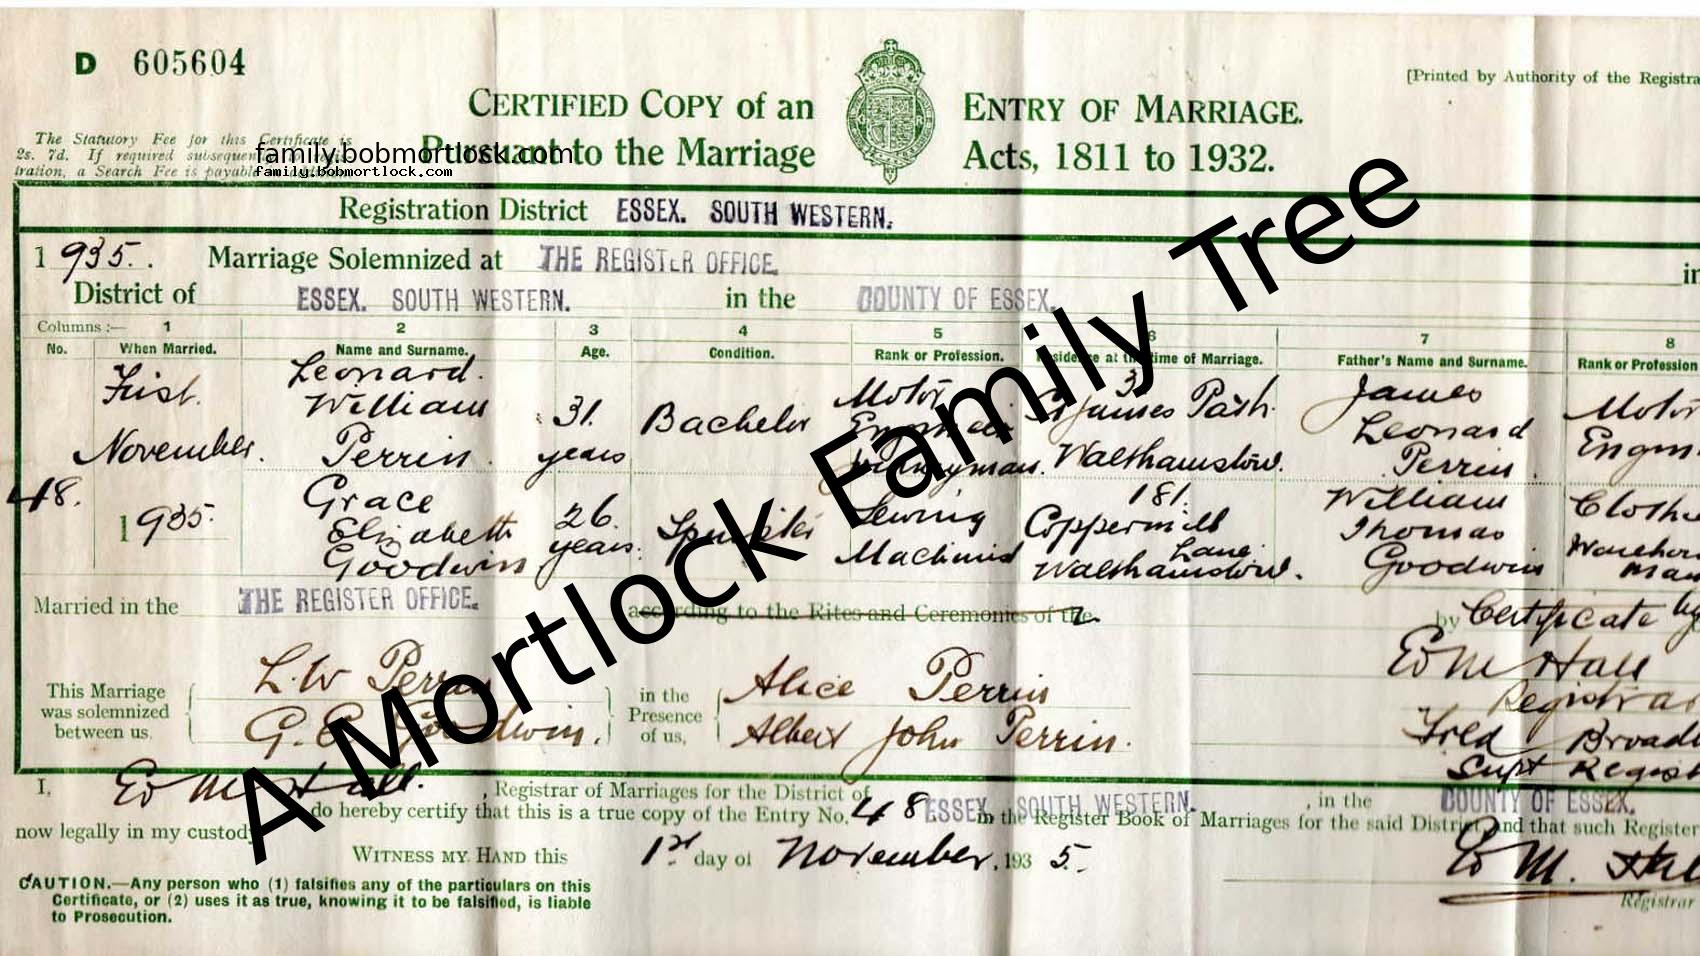 D 605604
[Printed by Authority of the Registra
CERTIFIED COPY of an ENTRY OF MARRIAGE.
Pursuant to the Marriage Acts, 1811 to 1932.
The Statutory Fee for this Certificate is
2s. 7d. If required subsequen
tration, a Search Fee is payable
family.bobmortlock.com
family.bobmortlock.com
Registration District ESSEX. SOUTH WESTERN.
1935. Marriage Solemnized at THE REGISTER OFFICE in
District of ESSEX. SOUTH WESTERN. in the COUNTY OF ESSEX.
Columns :— 1 2 3 4 5 6 7 8
No. When Married. Name and Surname. Age. Condition. Rank or Profession. Residence at the time of Marriage. Father's Name and Surname. Rank or Profession
48.
First November 1935.
Leonard William Perrin
31 years
Bachelor
Motor Engineer Journeyman.
3 St James Path Walthamstow.
James Leonard Perrin
Motor Engin
Grace Elizabeth Goodwin
26 years
Spinster
Sewing Machinist
181 Coppermill Lane Walthamstow.
William Thomas Goodwin
Clothi
Warehou
man
Married in the THE REGISTER OFFICE. according to the Rites and Ceremonies of the by Certificate by
This Marriage was solemnized between us,
L.W Perrin
G. E. Goodwin.
in the Presence of us,
Alice Perrin
Albert John Perrin.
Ed M Hall
Registrar
Fred Broad
Supt Regist
I, Ed M Hall. , Registrar of Marriages for the District of ESSEX. SOUTH WESTERN. , in the COUNTY OF ESSEX.
do hereby certify that this is a true copy of the Entry No. 48 in the Register Book of Marriages for the said District, and that such Register
now legally in my custody
WITNESS MY HAND this 1st day of November, 1935.
Ed M. Hal
Registrar
CAUTION.—Any person who (1) falsifies any of the particulars on this
Certificate, or (2) uses it as true, knowing it to be falsified, is liable
to Prosecution.
A Mortlock Family Tree